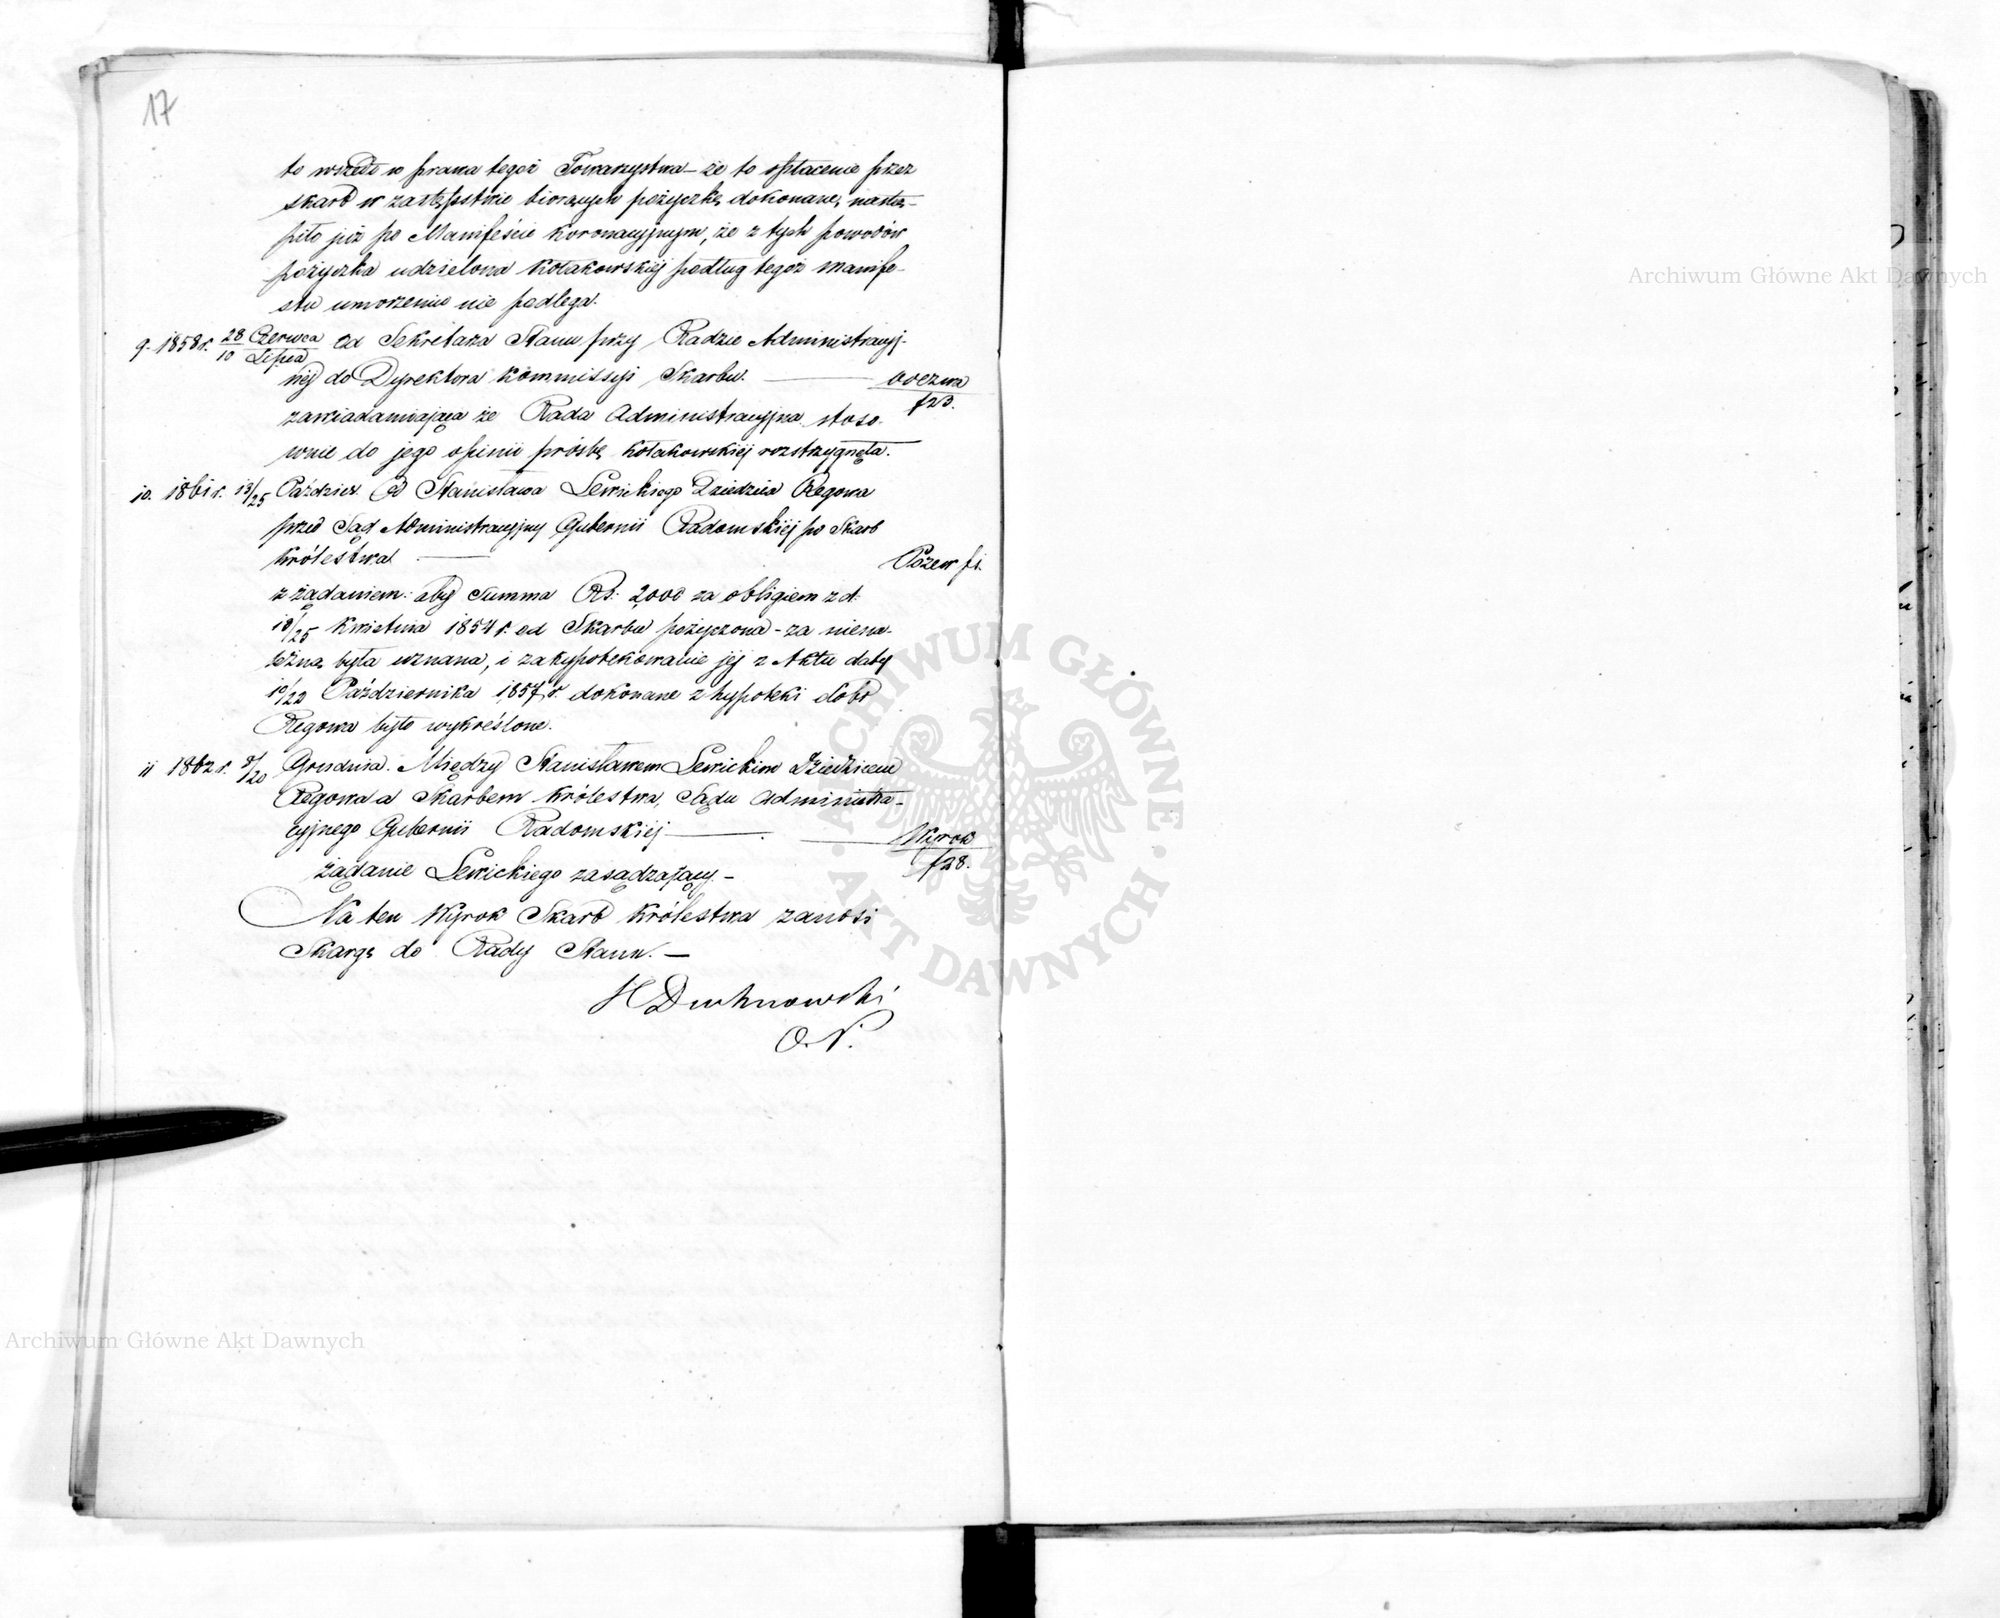 17
to wszedł w prawa tegoż Towarzystwa – że to opłacenie przez
skarb w zastępstwie biorących pożyczkę dokonane, nastą-
piło już po Manifeście koronacyjnym, że z tych powodów
pożyczka udzielona Kołakowskiéj podług tegoż manife-
stu umorzeniu nie podlega.
9. 1858 r. 28/10 Czerwca/Lipca Od Sekretarza Stanu przy Radzie Administracyj-
néj do Dyrektora Kommissyi Skarbu. — odezwa
f 23.
zawiadamiająca że Rada Administracyjna stoso-
wnie do jego opinii prośbę Kołakowskiéj rozstrzygnęła.
10. 1861 r. 13/25 Paździer. Od Stanisława Lewickiego Dziedzica Regowa
przed Sąd Administracyjny Gubernii Radomskiéj po Skarb
Królestwa — Pozew f1.
z żądaniem: aby Summa Rs: 2,000 za obligiem z d:
13/25 Kwietnia 1854 r. od Skarbu pożyczona – za niena-
leżną była uznana, i zahypotekowanie jéj z Aktu daty
10/22 Października 1857 r. dokonane z hypoteki dóbr
Regowa było wykreślone.
11 1862 r. 8/20 Grudnia. Między Stanisławem Lewickim Dziedzicem
Regowa a Skarbem Królestwa, Sądu Administra-
cyjnego Gubernii Radomskiéj — Wyrok
f 28.
żądanie Lewickiego zasądzający –
Na ten Wyrok Skarb Królestwa zanosi
Skargę do Rady Stanu. –
H Duchnowski
O. P.
Archiwum Główne Akt Dawnych
ARCHIWUM GŁÓWNE
AKT DAWNYCH
Archiwum Główne Akt Dawnych